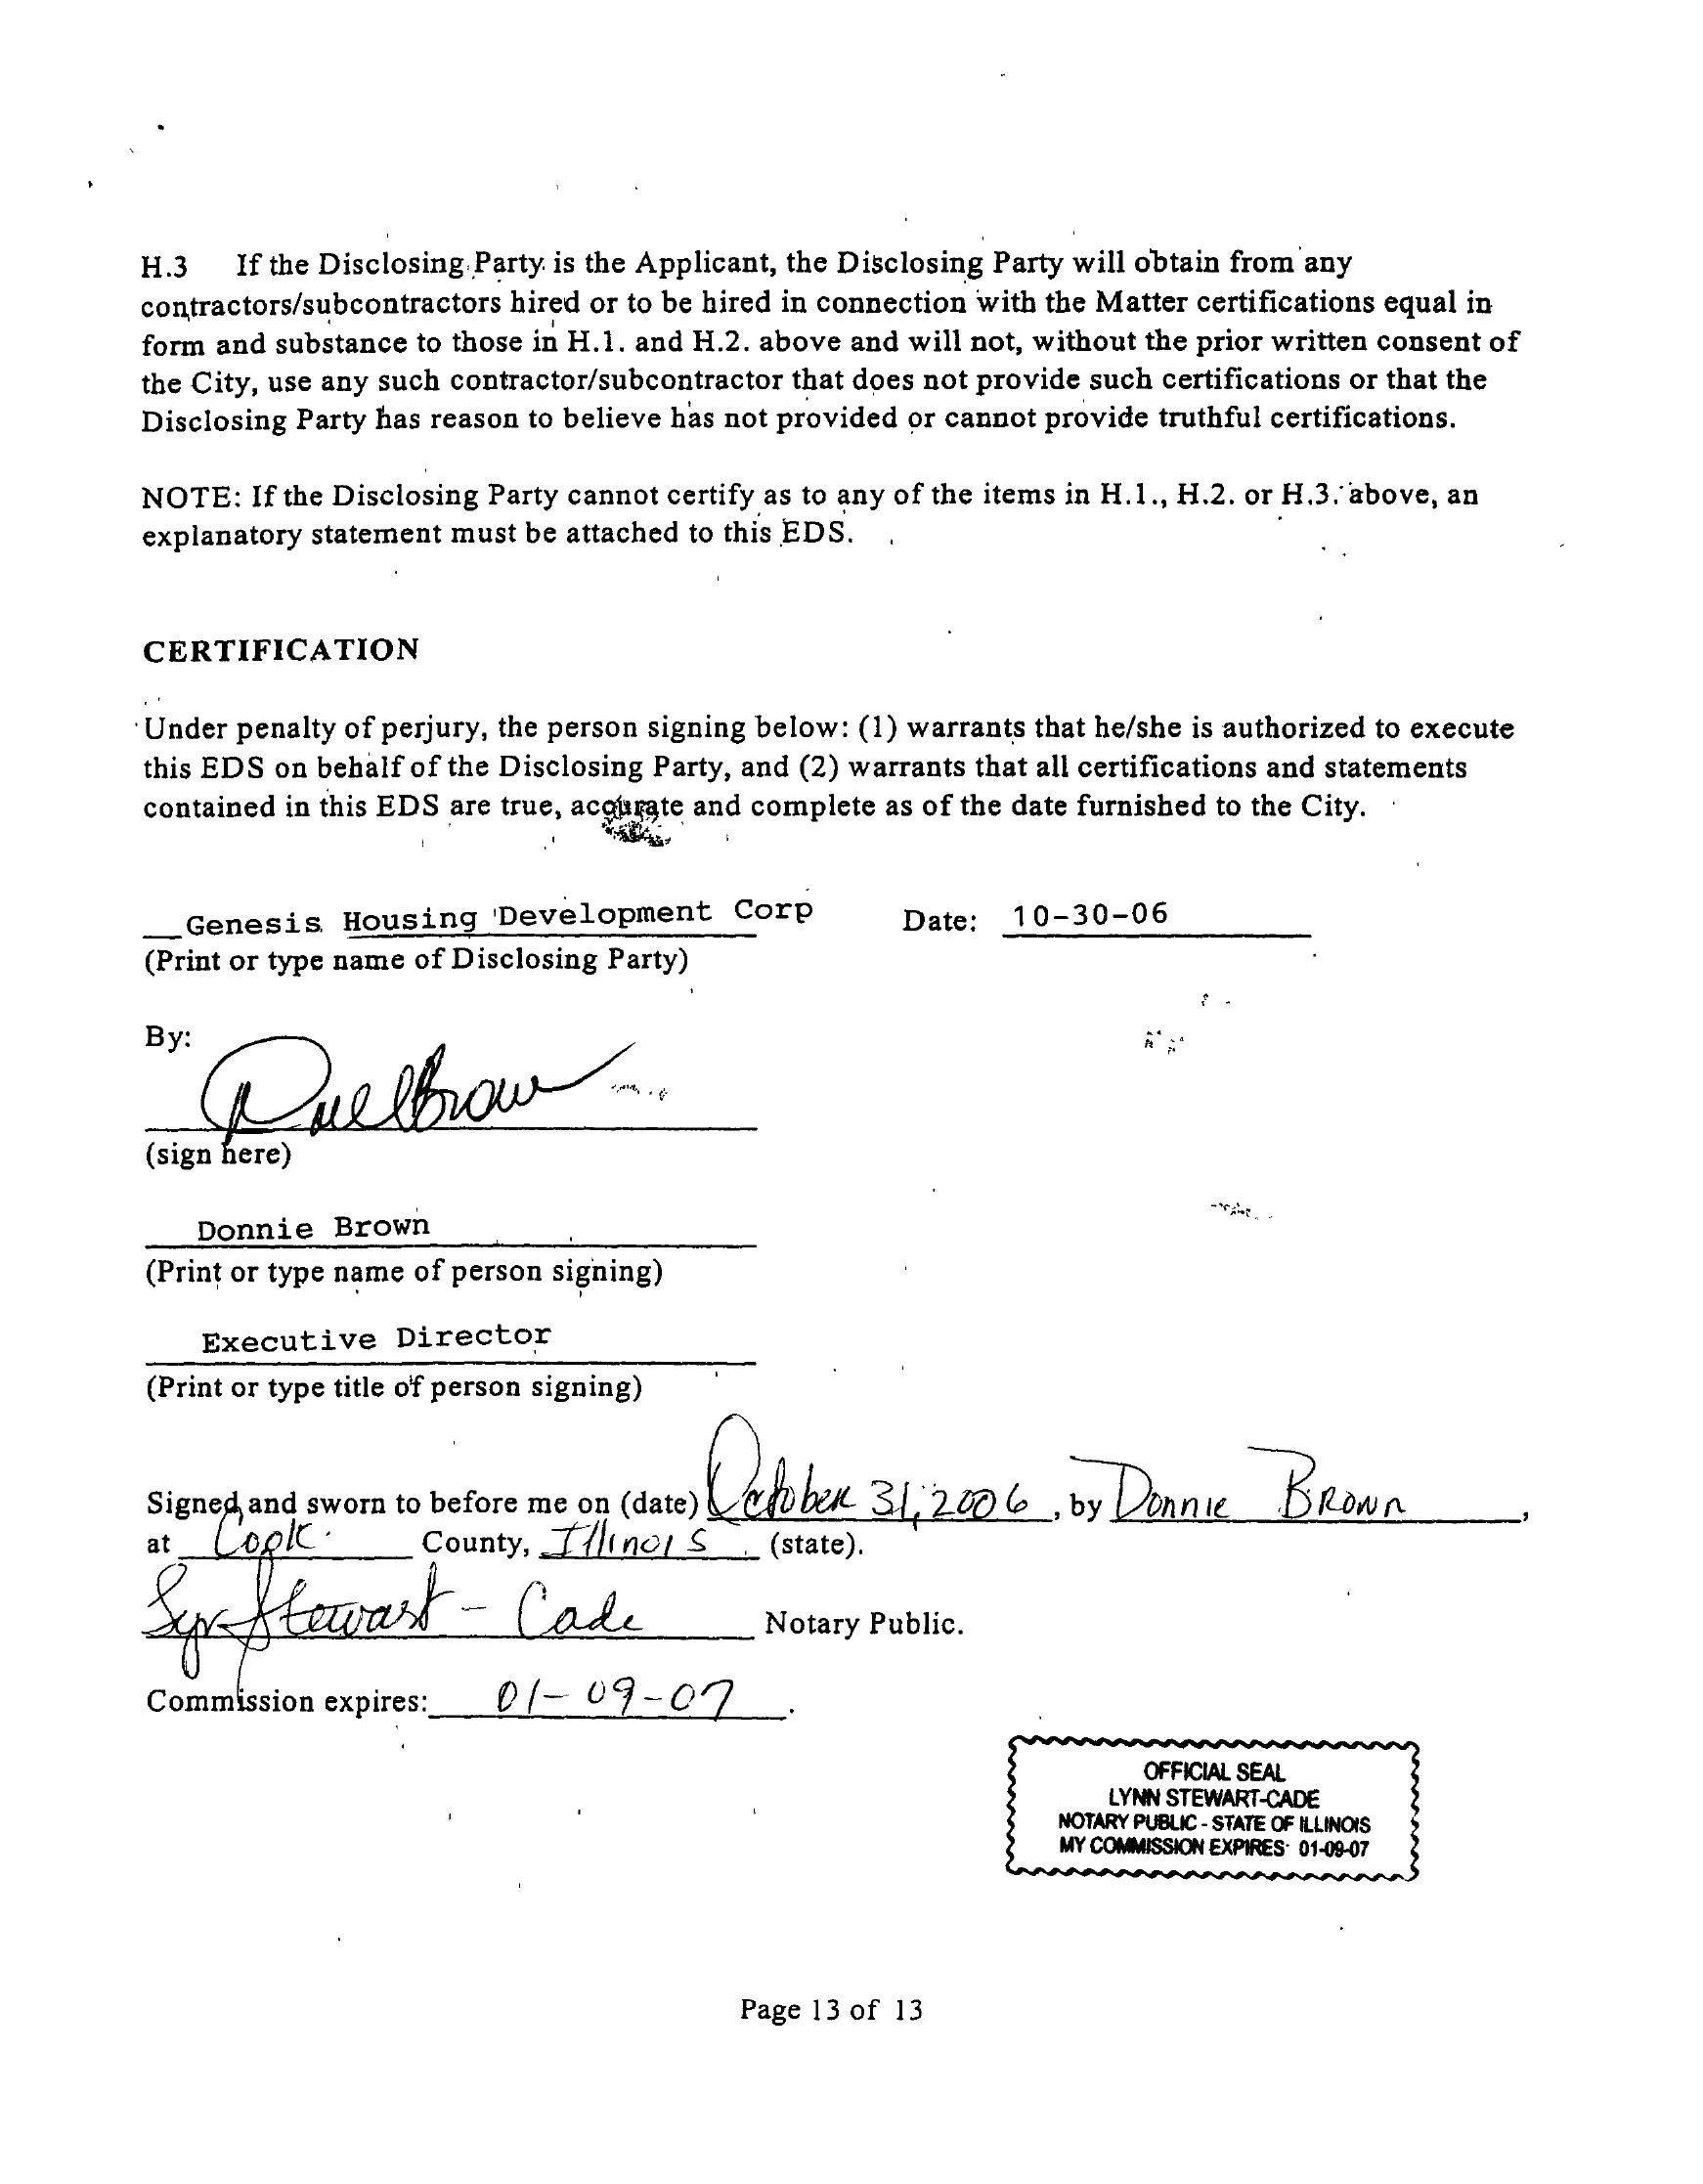 H.3 If the Disclosing Party is the Applicant, the Disclosing Party will obtain from any
contractors/subcontractors hired or to be hired in connection with the Matter certifications equal in
form and substance to those in H.1. and H.2. above and will not, without the prior written consent of
the City, use any such contractor/subcontractor that does not provide such certifications or that the
Disclosing Party has reason to believe has not provided or cannot provide truthful certifications.
NOTE: If the Disclosing Party cannot certify as to any of the items in H.1., H.2. or H.3. above, an
explanatory statement must be attached to this EDS.
CERTIFICATION
Under penalty of perjury, the person signing below: (1) warrants that he/she is authorized to execute
this EDS on behalf of the Disclosing Party, and (2) warrants that all certifications and statements
contained in this EDS are true, accurate and complete as of the date furnished to the City.
Genesis Housing Development Corp Date: 10-30-06
(Print or type name of Disclosing Party)
By:
Brown
(sign here)
Donnie Brown
(Print or type name of person signing)
Executive Director
(Print or type title of person signing)
Signed and sworn to before me on (date) October 31, 2006, by Donnie Brown,
at Cook County, Illinois (state).
Stewart-Cade Notary Public.
Commission expires: 01-09-07.
OFFICIAL SEAL
LYNN STEWART-CADE
NOTARY PUBLIC - STATE OF ILLINOIS
MY COMMISSION EXPIRES: 01-09-07
Page 13 of 13